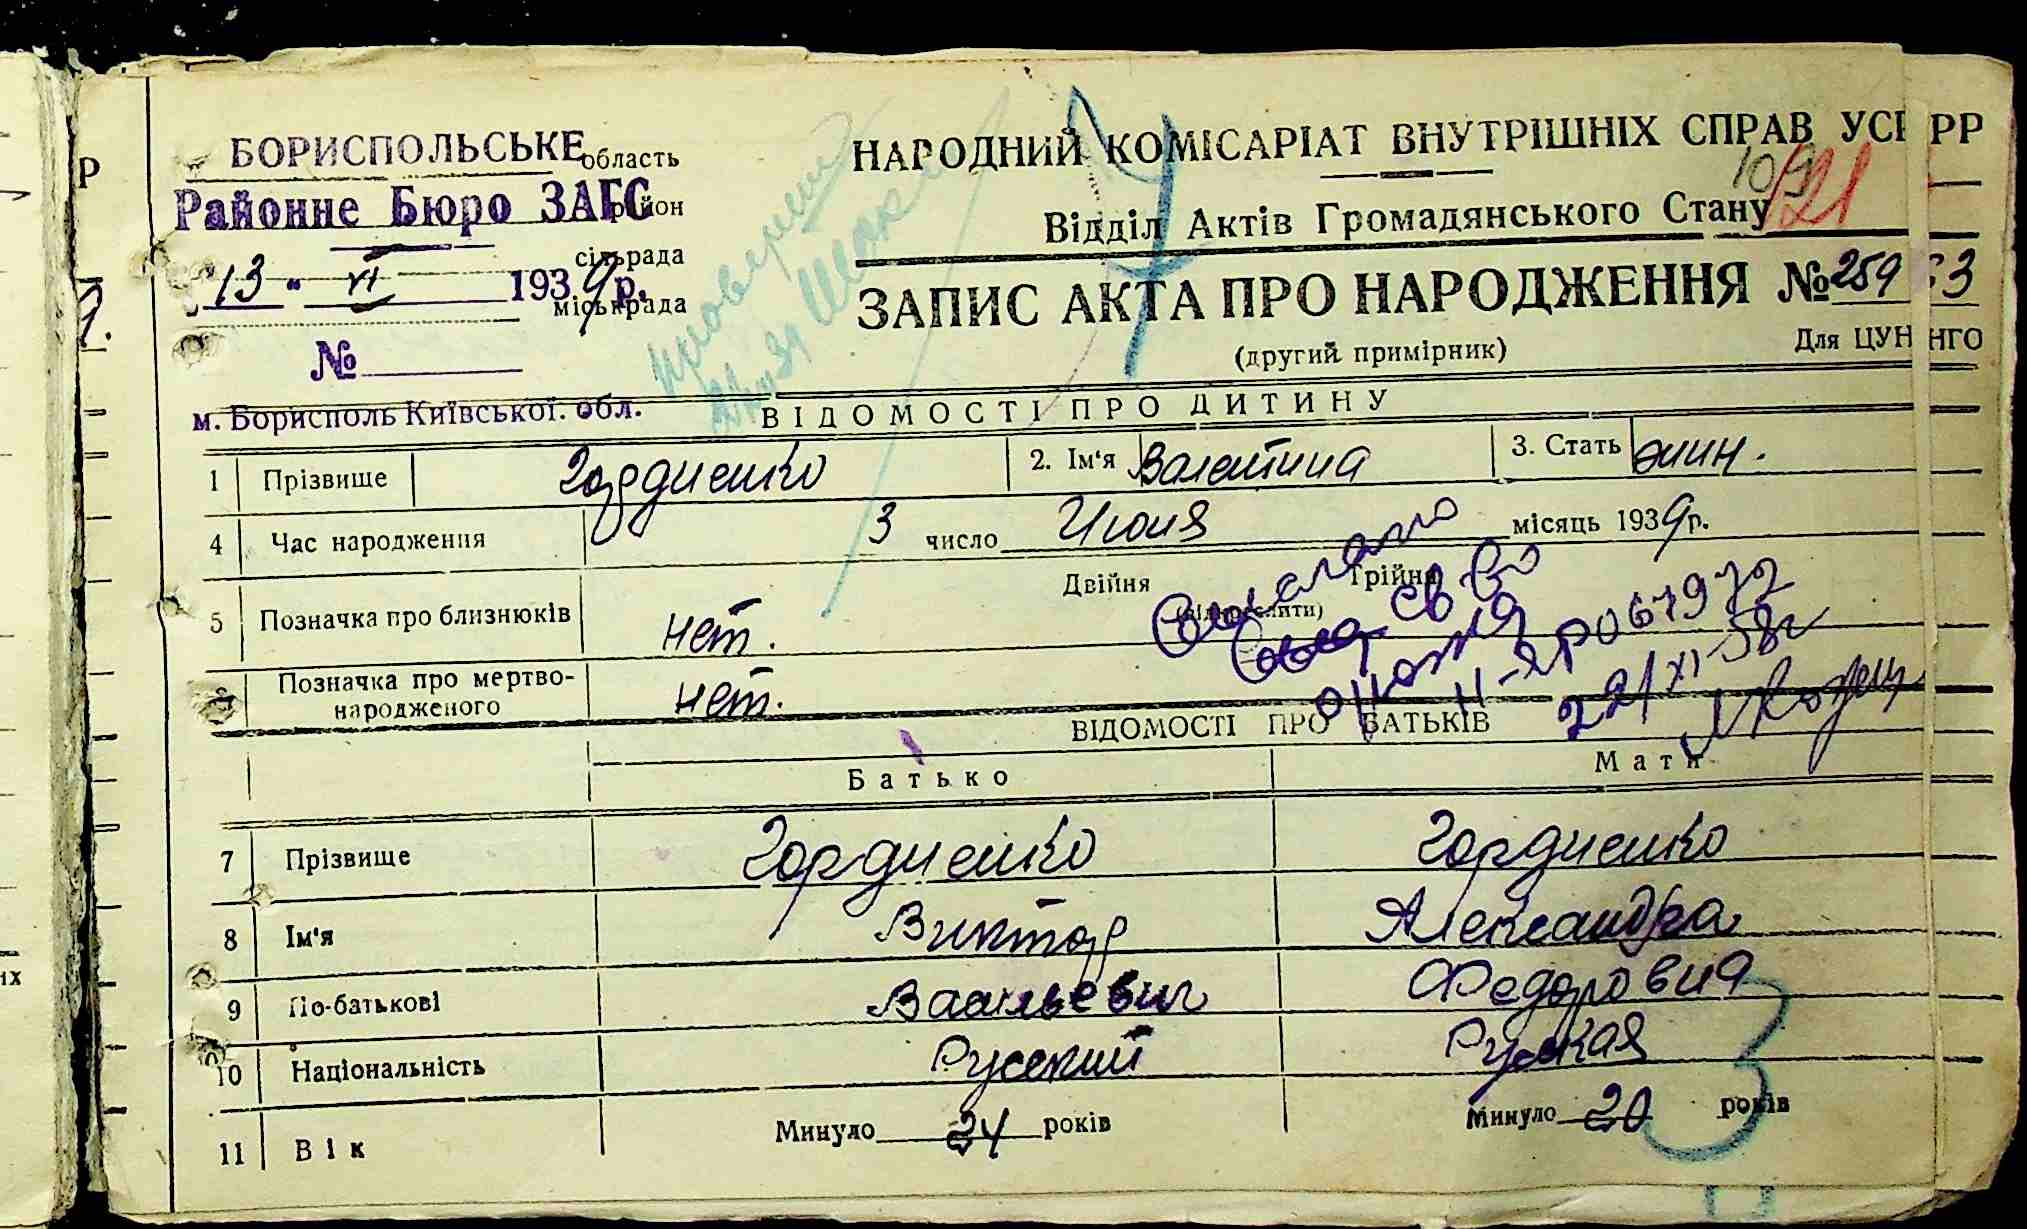 БОРИСПОЛЬСЬКЕ область
Районне Бюро ЗАГС район
сільрада
"13" VI 1939 р.
міськрада
№
м. Борисполь Київської. обл.
НАРОДНИЙ КОМІСАРІАТ ВНУТРІШНІХ СПРАВ УСРР
109
121
Відділ Актів Громадянського Стану
ЗАПИС АКТА ПРО НАРОДЖЕННЯ № 259
(другий примірник)
Для ЦУНГО
ВІДОМОСТІ ПРО ДИТИНУ
1 Прізвище Гордиенко 2. Ім'я Валентина 3. Стать жин.
4 Час народження 3 число Июня місяць 1939 р.
5 Позначка про близнюків нет. Двійня Трійня
(підкреслити)
6 Позначка про мертво-
народженого нет.
II-ЯР 067972
22/XI-58г
ВІДОМОСТІ ПРО БАТЬКІВ
Батько Мати
7 Прізвище Гордиенко Гордиенко
8 Ім'я Виктор Александра
9 По-батькові Васильевич Федоровна
10 Національність Русский Русская
11 Вік Минуло 24 років Минуло 20 років
3